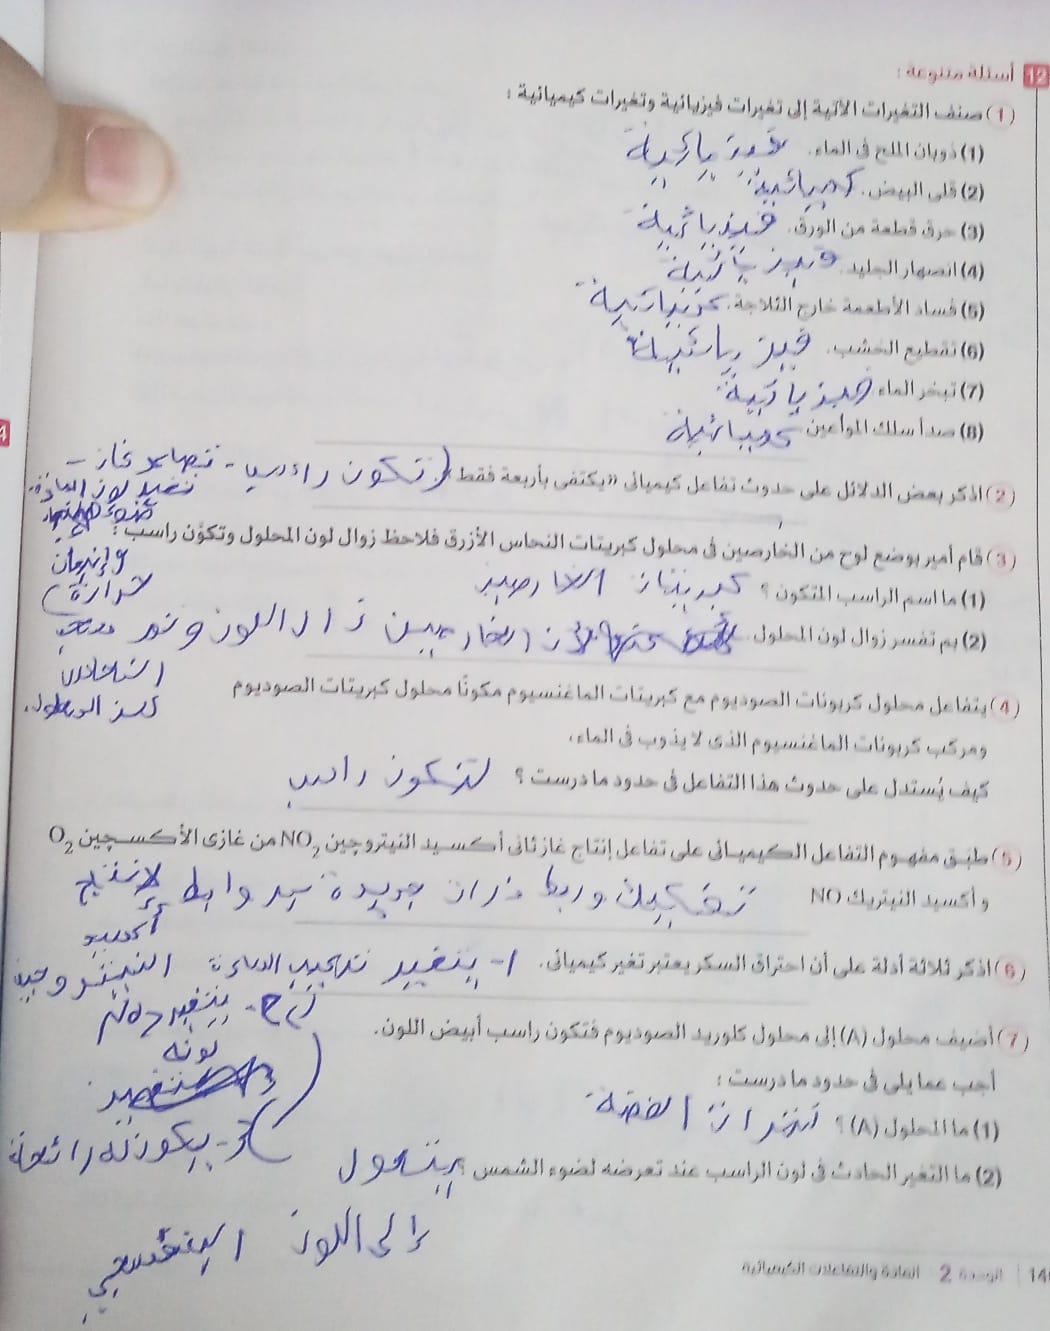 12 أسئلة متنوعة :
(1) صنف التغيرات الآتية إلى تغيرات فيزيائية وتغيرات كيميائية :
(1) ذوبان الملح فى الماء. فيزيائية
(2) قلى البيض. كميائية
(3) حرق قطعة من الورق. فيزيائية
(4) انصهار الجليد. فيزيائية
(5) فساد الأطعمة خارج الثلاجة.
(6) تقطيع الخشب. فيزيائية
(7) تبخر الماء فيزيائية
(8) صدأ سلك المواعين كميائية
(2) اذكر بعض الدلائل على حدوث تفاعل كيميائى «يكتفى بأربعة فقط» (تكون راسب - تصاعد غاز -
تغير لون المادة
حرارة)
(3) قام أمير بوضع لوح من الخارصين فى محلول كبريتات النحاس الأزرق فلاحظ زوال لون المحلول وتكوّن راسب :
(1) ما اسم الراسب المتكون ؟ كبريتات الخارصين
(2) بم تفسر زوال لون المحلول. لأن الخارصين زال اللون
النحاس
(4) يتفاعل محلول كربونات الصوديوم مع كبريتات الماغنسيوم مكونًا محلول كبريتات الصوديوم
ومركب كربونات الماغنسيوم الذى لا يذوب فى الماء،
كيف يُستدل على حدوث هذا التفاعل فى حدود ما درست ؟ لتكون راسب
(5) طبق مفهوم التفاعل الكيميائى على تفاعل إنتاج غاز ثانى أكسيد النيتروجين NO2 من غازى الأكسچين O2
و أكسيد النيتريك NO تفكيك وربط ذرات جديدة روابط لانتاج
أكسيد
النيتروجين
(6) اذكر ثلاثة أدلة على أن احتراق السكر يعتبر تغير كيميائى. 1- يتغير تركيب المادة
2- يتغير
لونه
3- يكون له رائحة
(7) أضيف محلول (A) إلى محلول كلوريد الصوديوم فتكون راسب أبيض اللون.
أجب عما يلى فى حدود ما درست :
(1) ما المحلول (A) ؟ نترات الفضة
(2) ما التغير الحادث فى لون الراسب عند تعرضه لضوء الشمس ؟ يتحول
إلى اللون البنفسجي
14 | الوحدة 2 المادة والتفاعلات الكيميائية
4